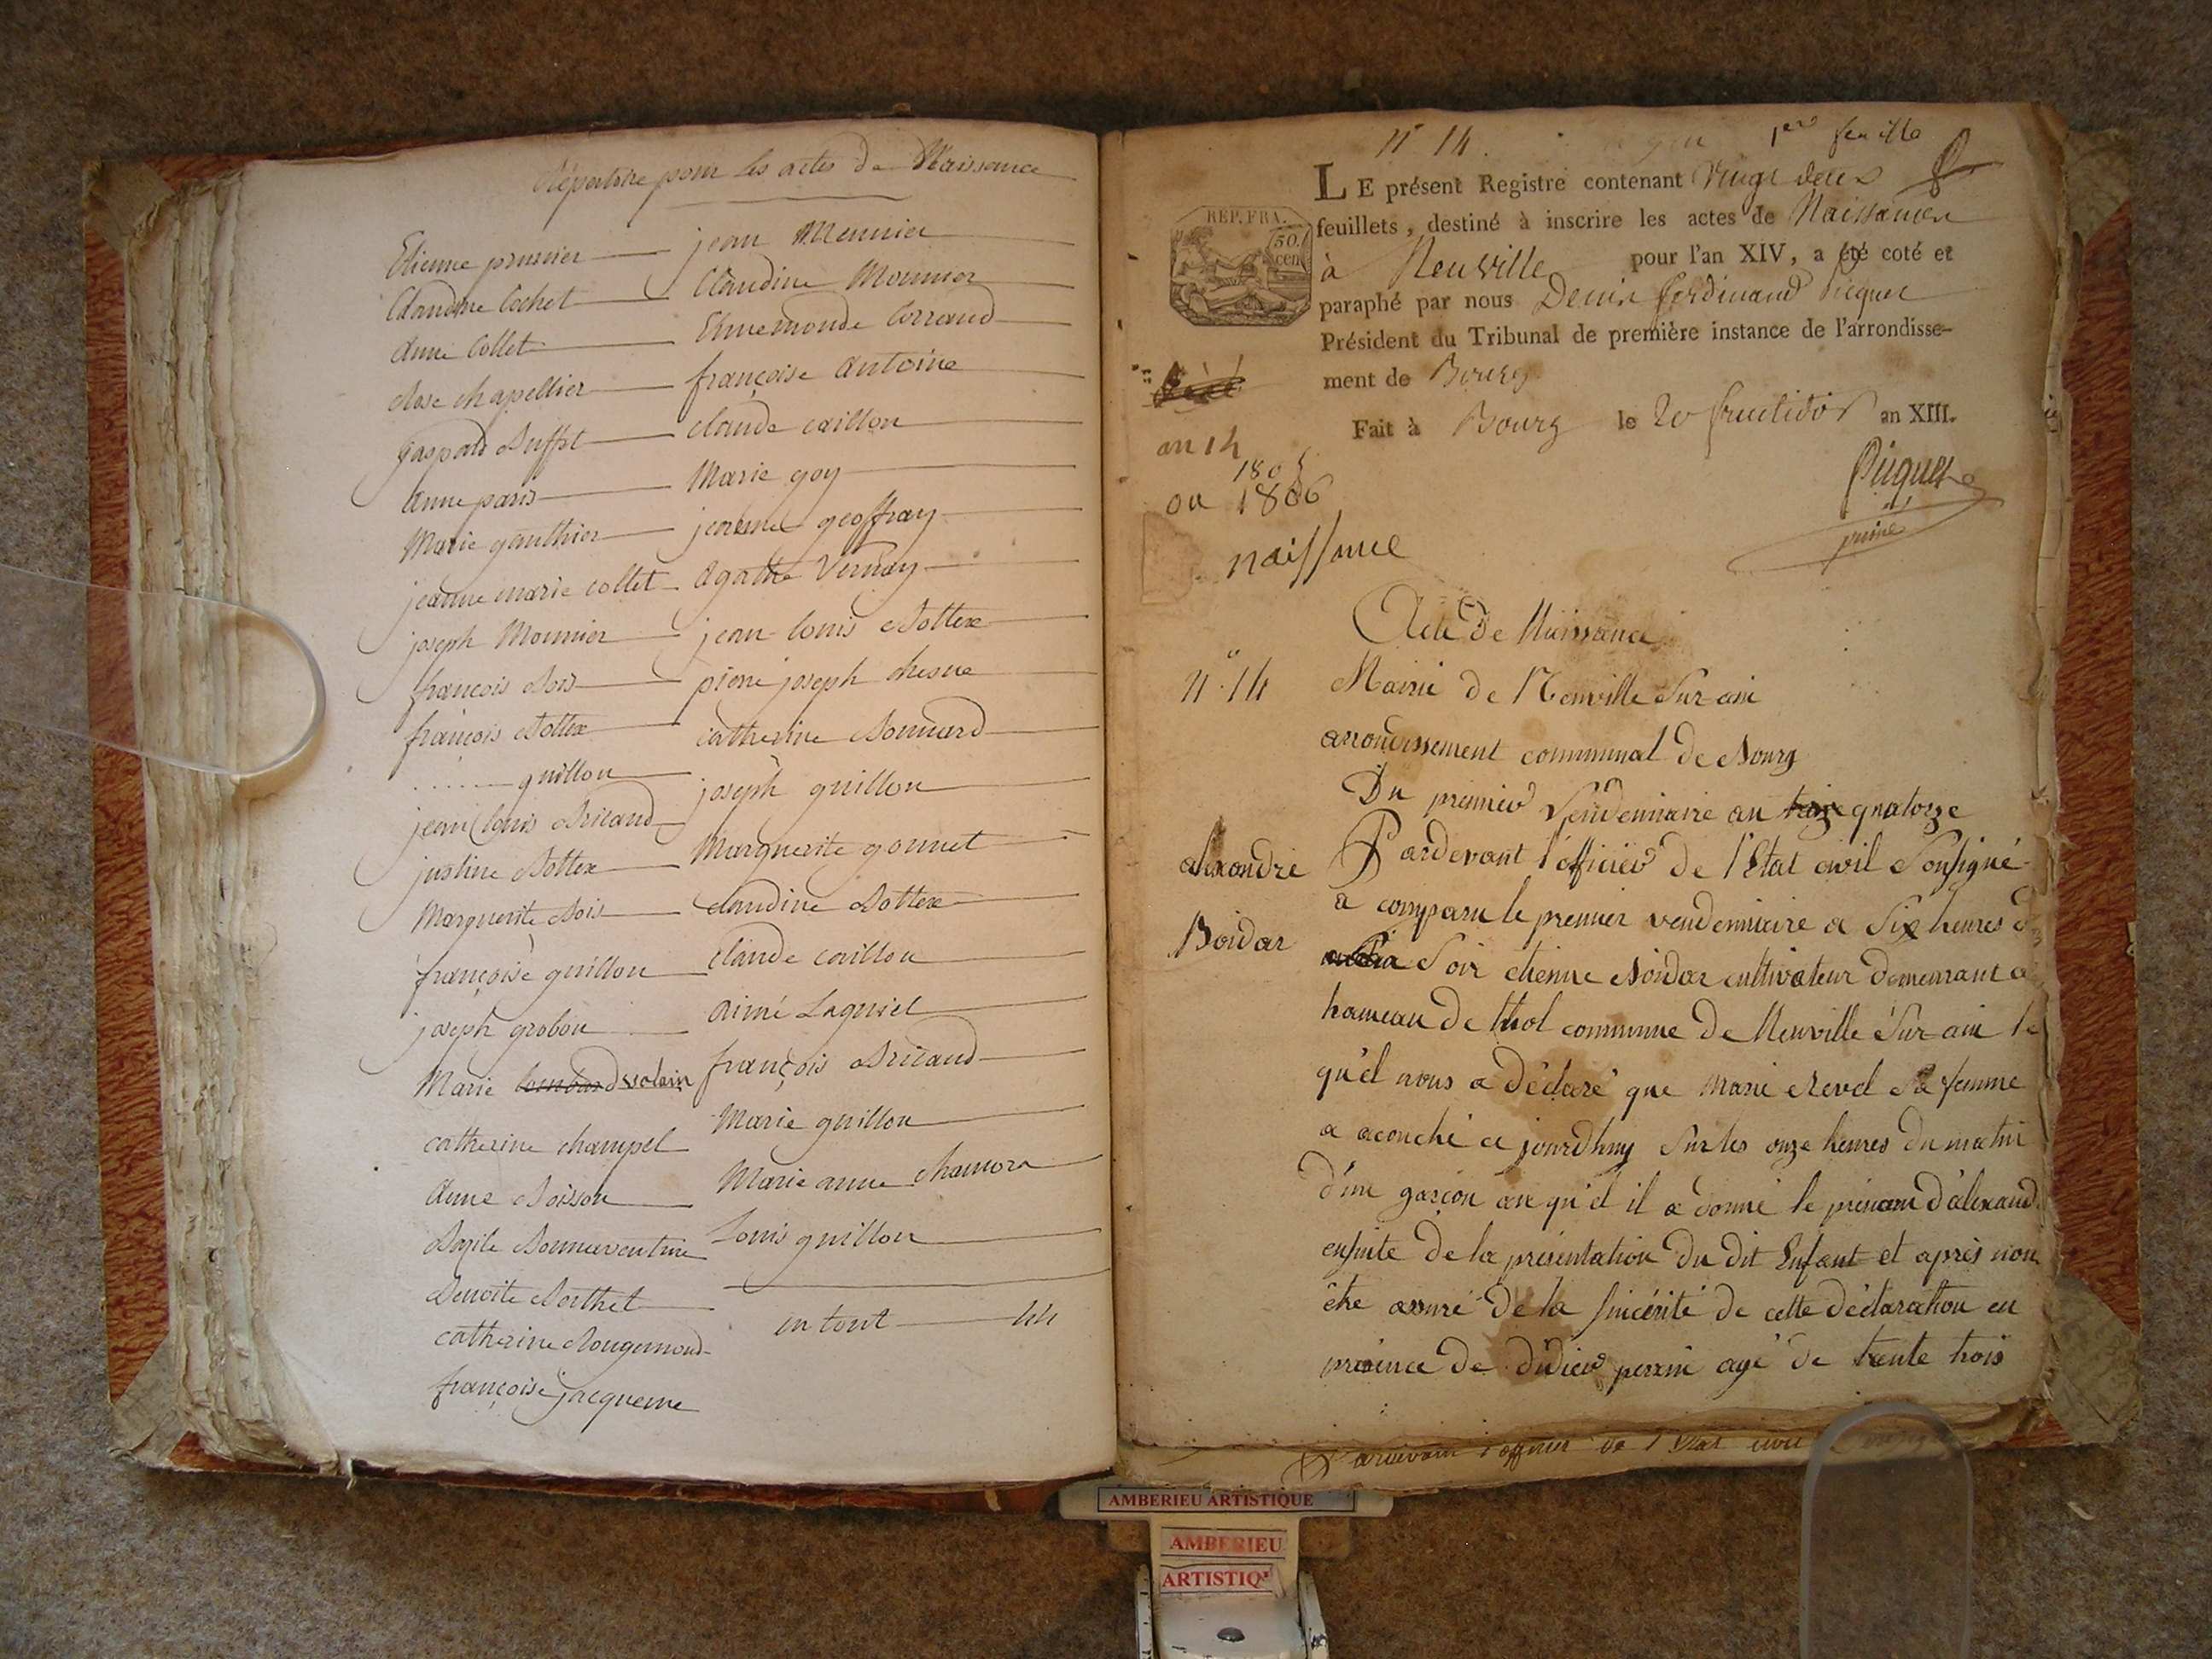 Répertoire pour les actes de Naissance
Etienne prunier
Claudine Cochet
Anne Collet
Rose chapellier
gaspard Buffet
anne paris
Marie gauthier
jeanne marie collet
joseph Mounier
françois Bois
françois Bottex
guillou
jean louis Bricaud
justine Bottex
Marguerite Bois
françoise guillou
joseph grobon
Marie
catherine champel
Anne Boisson
Bonnaventure
Benoite Berthet
catherine Rougemond
françoise jacqueme
jean Meunier
Claudine Mounier
Ennemonde Corraud
françoise Antoine
claude caillou
Marie goy
jeanne geoffray
Agathe Vernay
jean louis Bottex
pierre joseph chesne
catherine Bonnard
joseph guillou
Marguerite gonnet
claudine Bottex
Claude caillou
Aimé
françois Bricaud
Marie guillou
Marie anne chamora
Louis guillou
en tout 44
N° 14. 1ere feuille
LE présent Registre contenant Vingt deux
feuillets, destiné à inscrire les actes de Naissances
à Neuville pour l'an XIV, a été coté et
paraphé par nous Denis ferdinand Picquet
Président du Tribunal de première instance de l'arrondisse-
ment de Bourg
Fait à Bourg le 20 fructidor an XIII.
Picquet
REP. FRA.
50.
cen
an 14
1805
ou 1806
naissance
Acte De Naissance
N° 14
Mairie de Neuville Sur ain
arrondissement communal de Bourg
Du premier Vendemiaire an treize quatorze
alexandre
Boidar
Pardevant l'officier de l'Etat civil Sousigné
a comparu le premier vendemiaire a Six heures d
Soir etienne Boidar cultivateur demeurant a
hameau de thol commune de Neuville Sur ain le
qu'el nous a déclaré que Marie Revel Sa femme
a acouché ce jourdhuy Sur les onze heures du matin
d'un garçon au qu'el il a donné le prenom d'alexand
ensuite de la présentation du dit Enfant et après nou
être assuré de la Sincérité de cette déclaration en
présence de didier perrin agé de trente trois
Pardevant l'officier de l'Etat civil
AMBERIEU ARTISTIQUE
AMBERIEU
ARTISTIQ